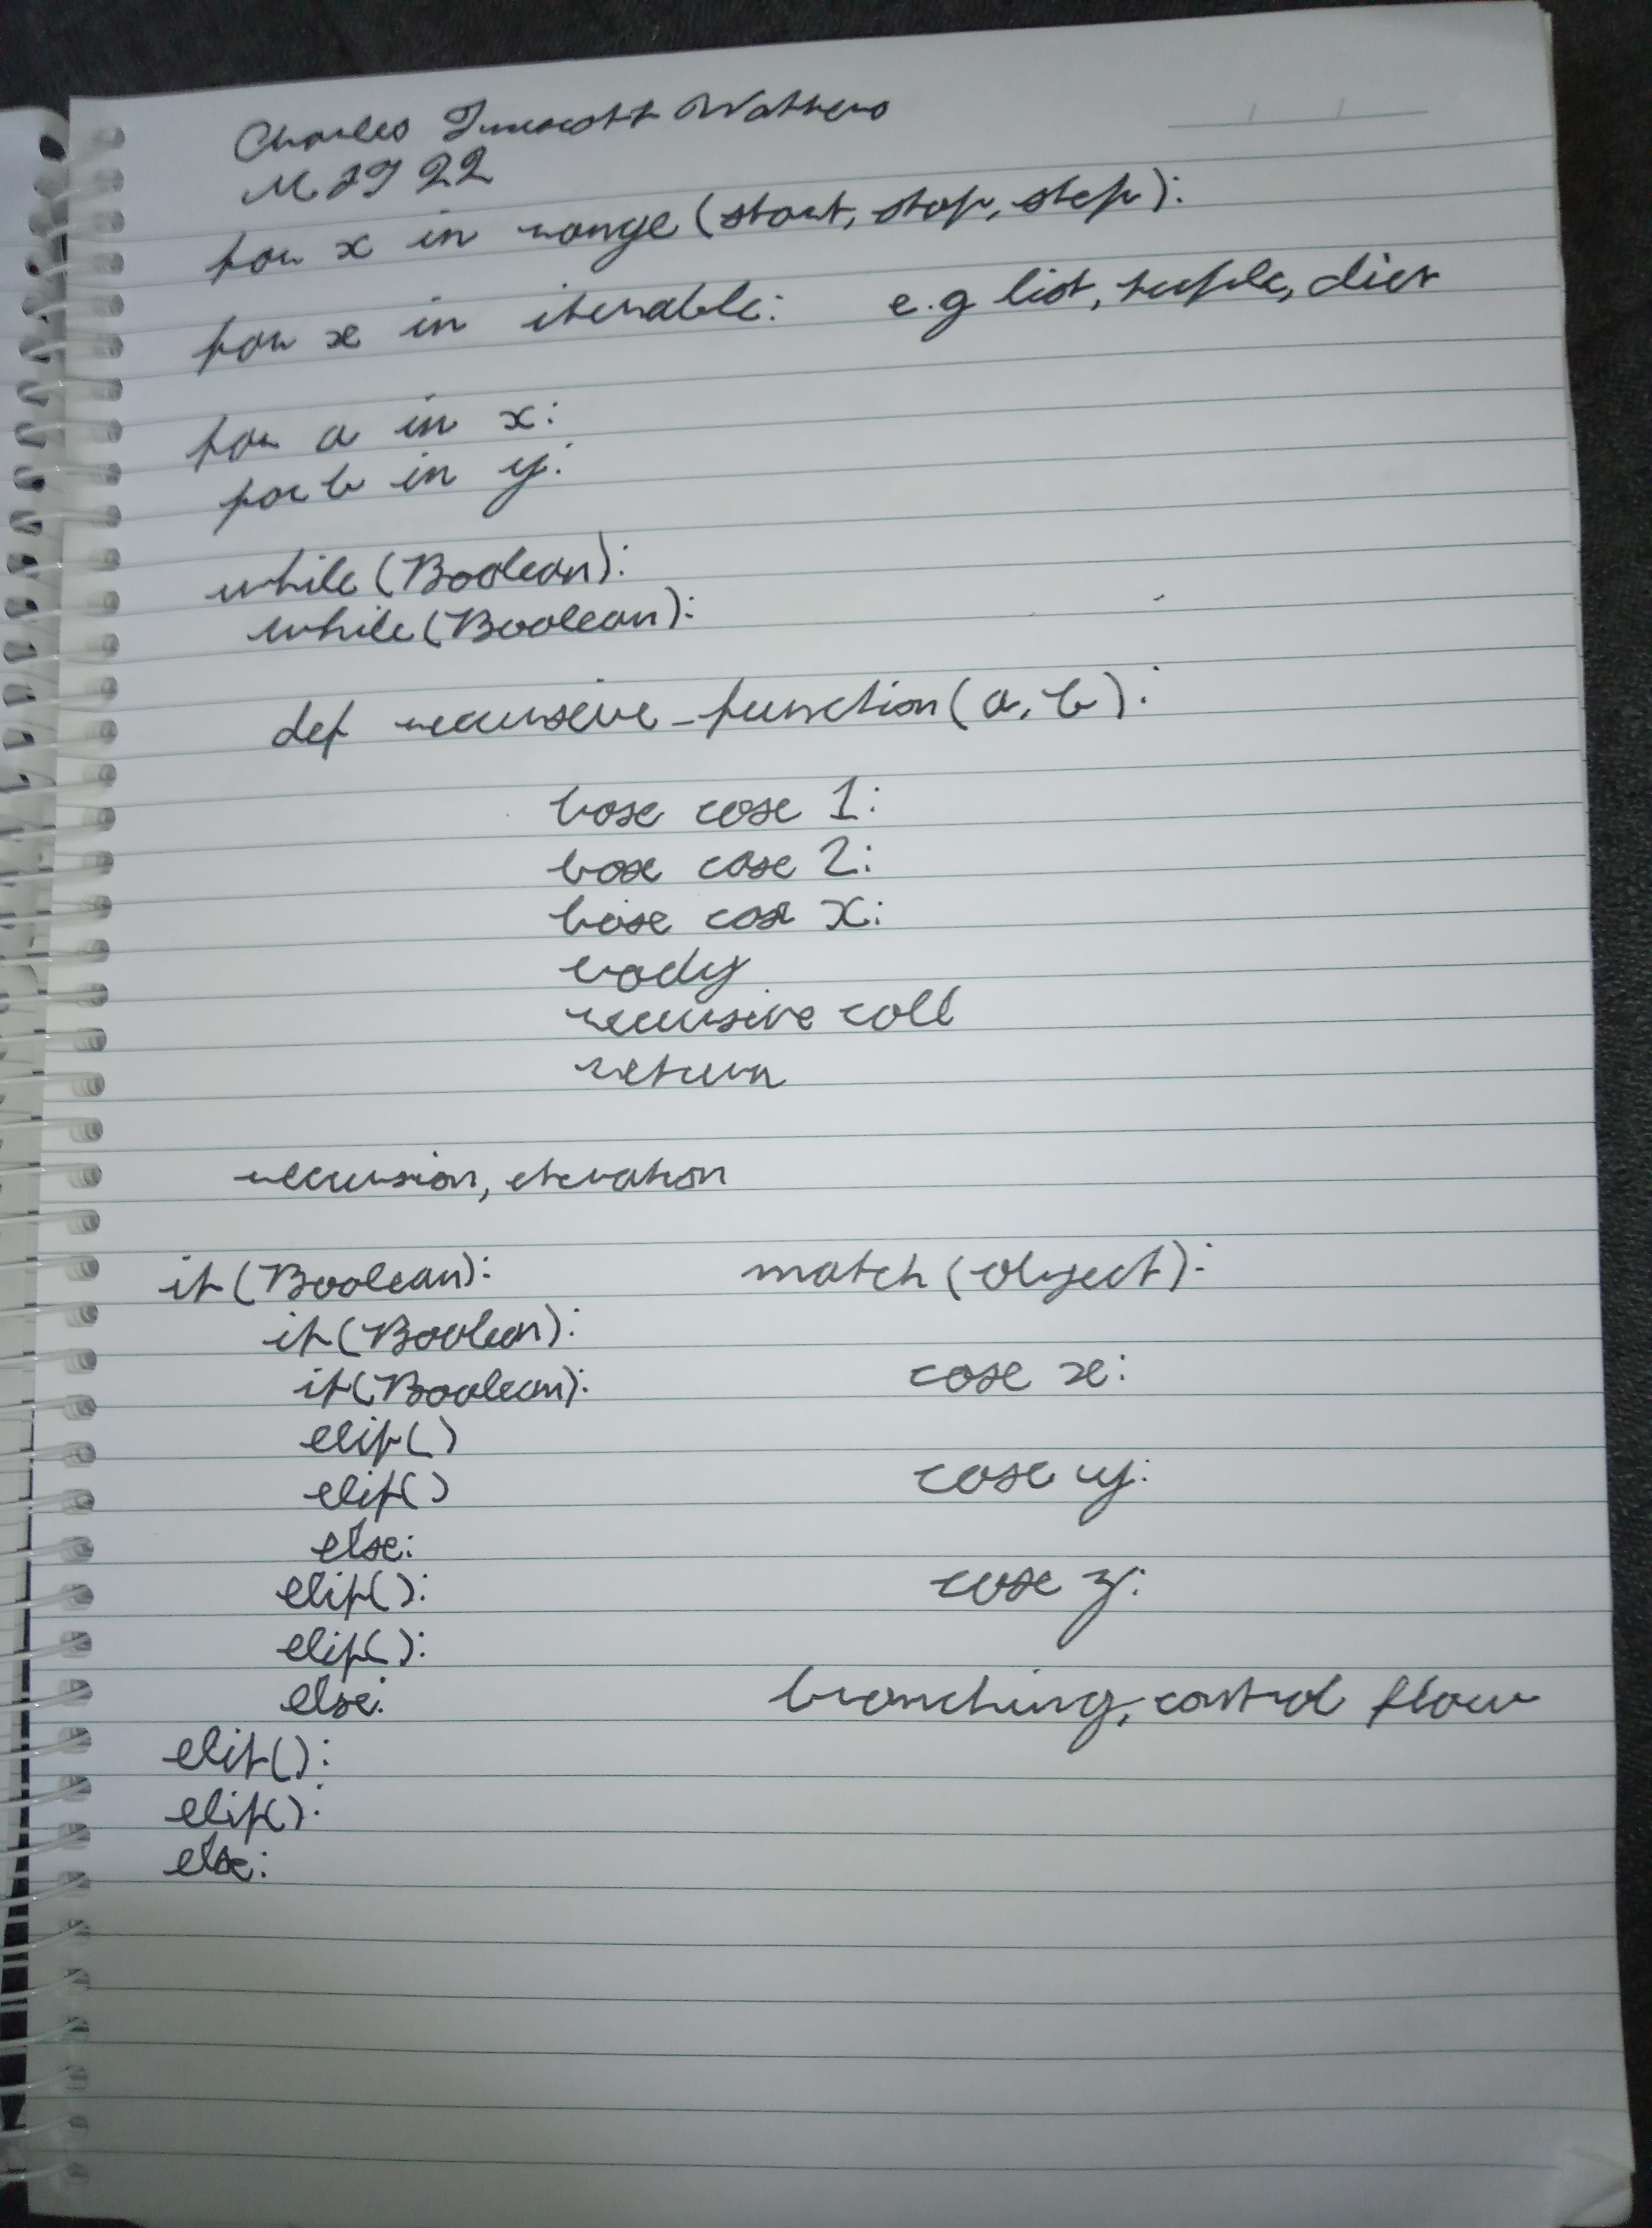 Charles Truscott Watters
for x in range (start, stop, step):
for x in iterable: e.g list, tuple, dict
for a in x:
for b in y:
while (Boolean):
while (Boolean):
def recursive_function (a, b):
base case 1:
base case 2:
base case X:
body
recursive call
return
recursion, iteration
if (Boolean):
if (Boolean):
if (Boolean):
elif ()
elif ()
else:
elif ():
elif ():
else:
elif ():
elif ():
else:
match (object):
case x:
case y:
case z:
branching, control flow